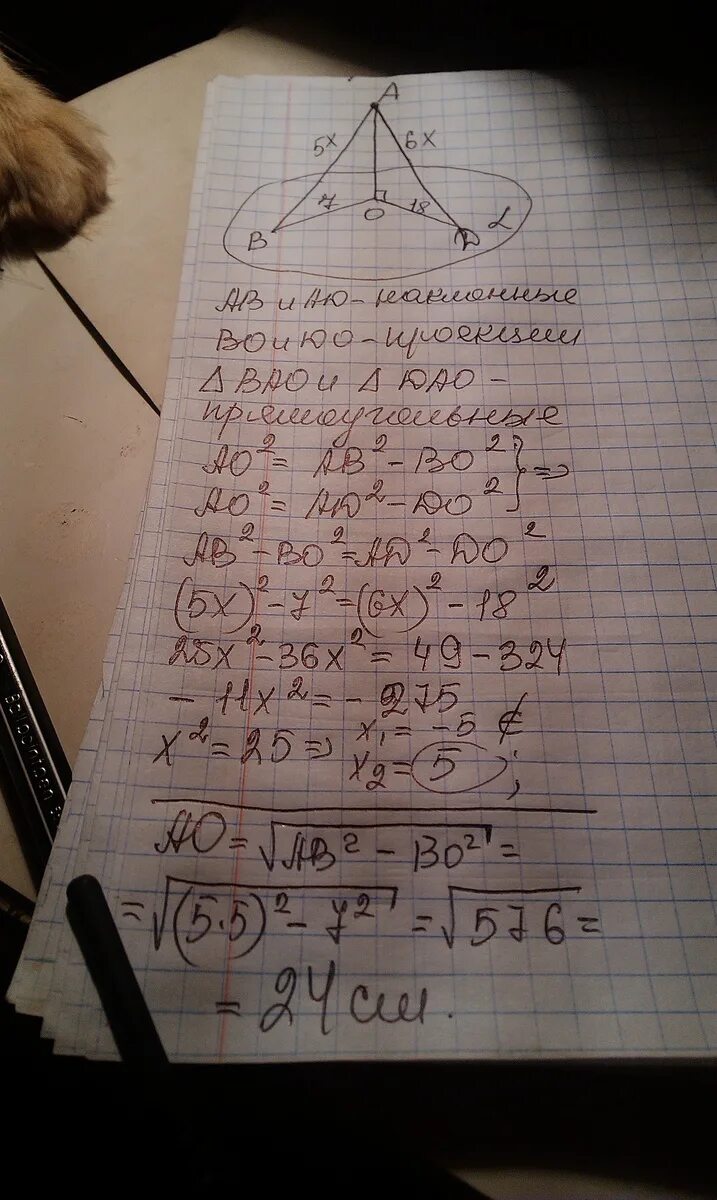 A
5x 6x
7 18
B O D α
AB и AD - наклонные
BO и DO - проекции
△ BAO и △ DAO -
прямоугольные
AO² = AB² - BO² } =>
AO² = AD² - DO²
AB² - BO² = AD² - DO²
(5x)² - 7² = (6x)² - 18²
25x² - 36x² = 49 - 324
- 11x² = - 275
x² = 25 => x₁ = -5 ∉
x₂ = 5 ;
AO = √AB² - BO² =
= √(5·5)² - 7² = √576 =
= 24 см.
Ballpointpen